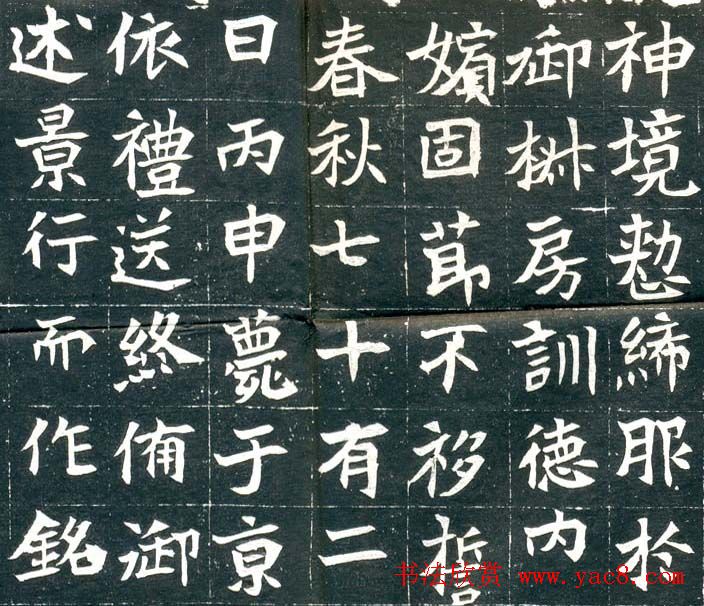 神境締服於
御椒房訓德内
嬪固莭不移哲
春秋七十有二
日丙申薨于京
依禮送終俻御
述景行而作銘
书法欣赏 www.yac8.com